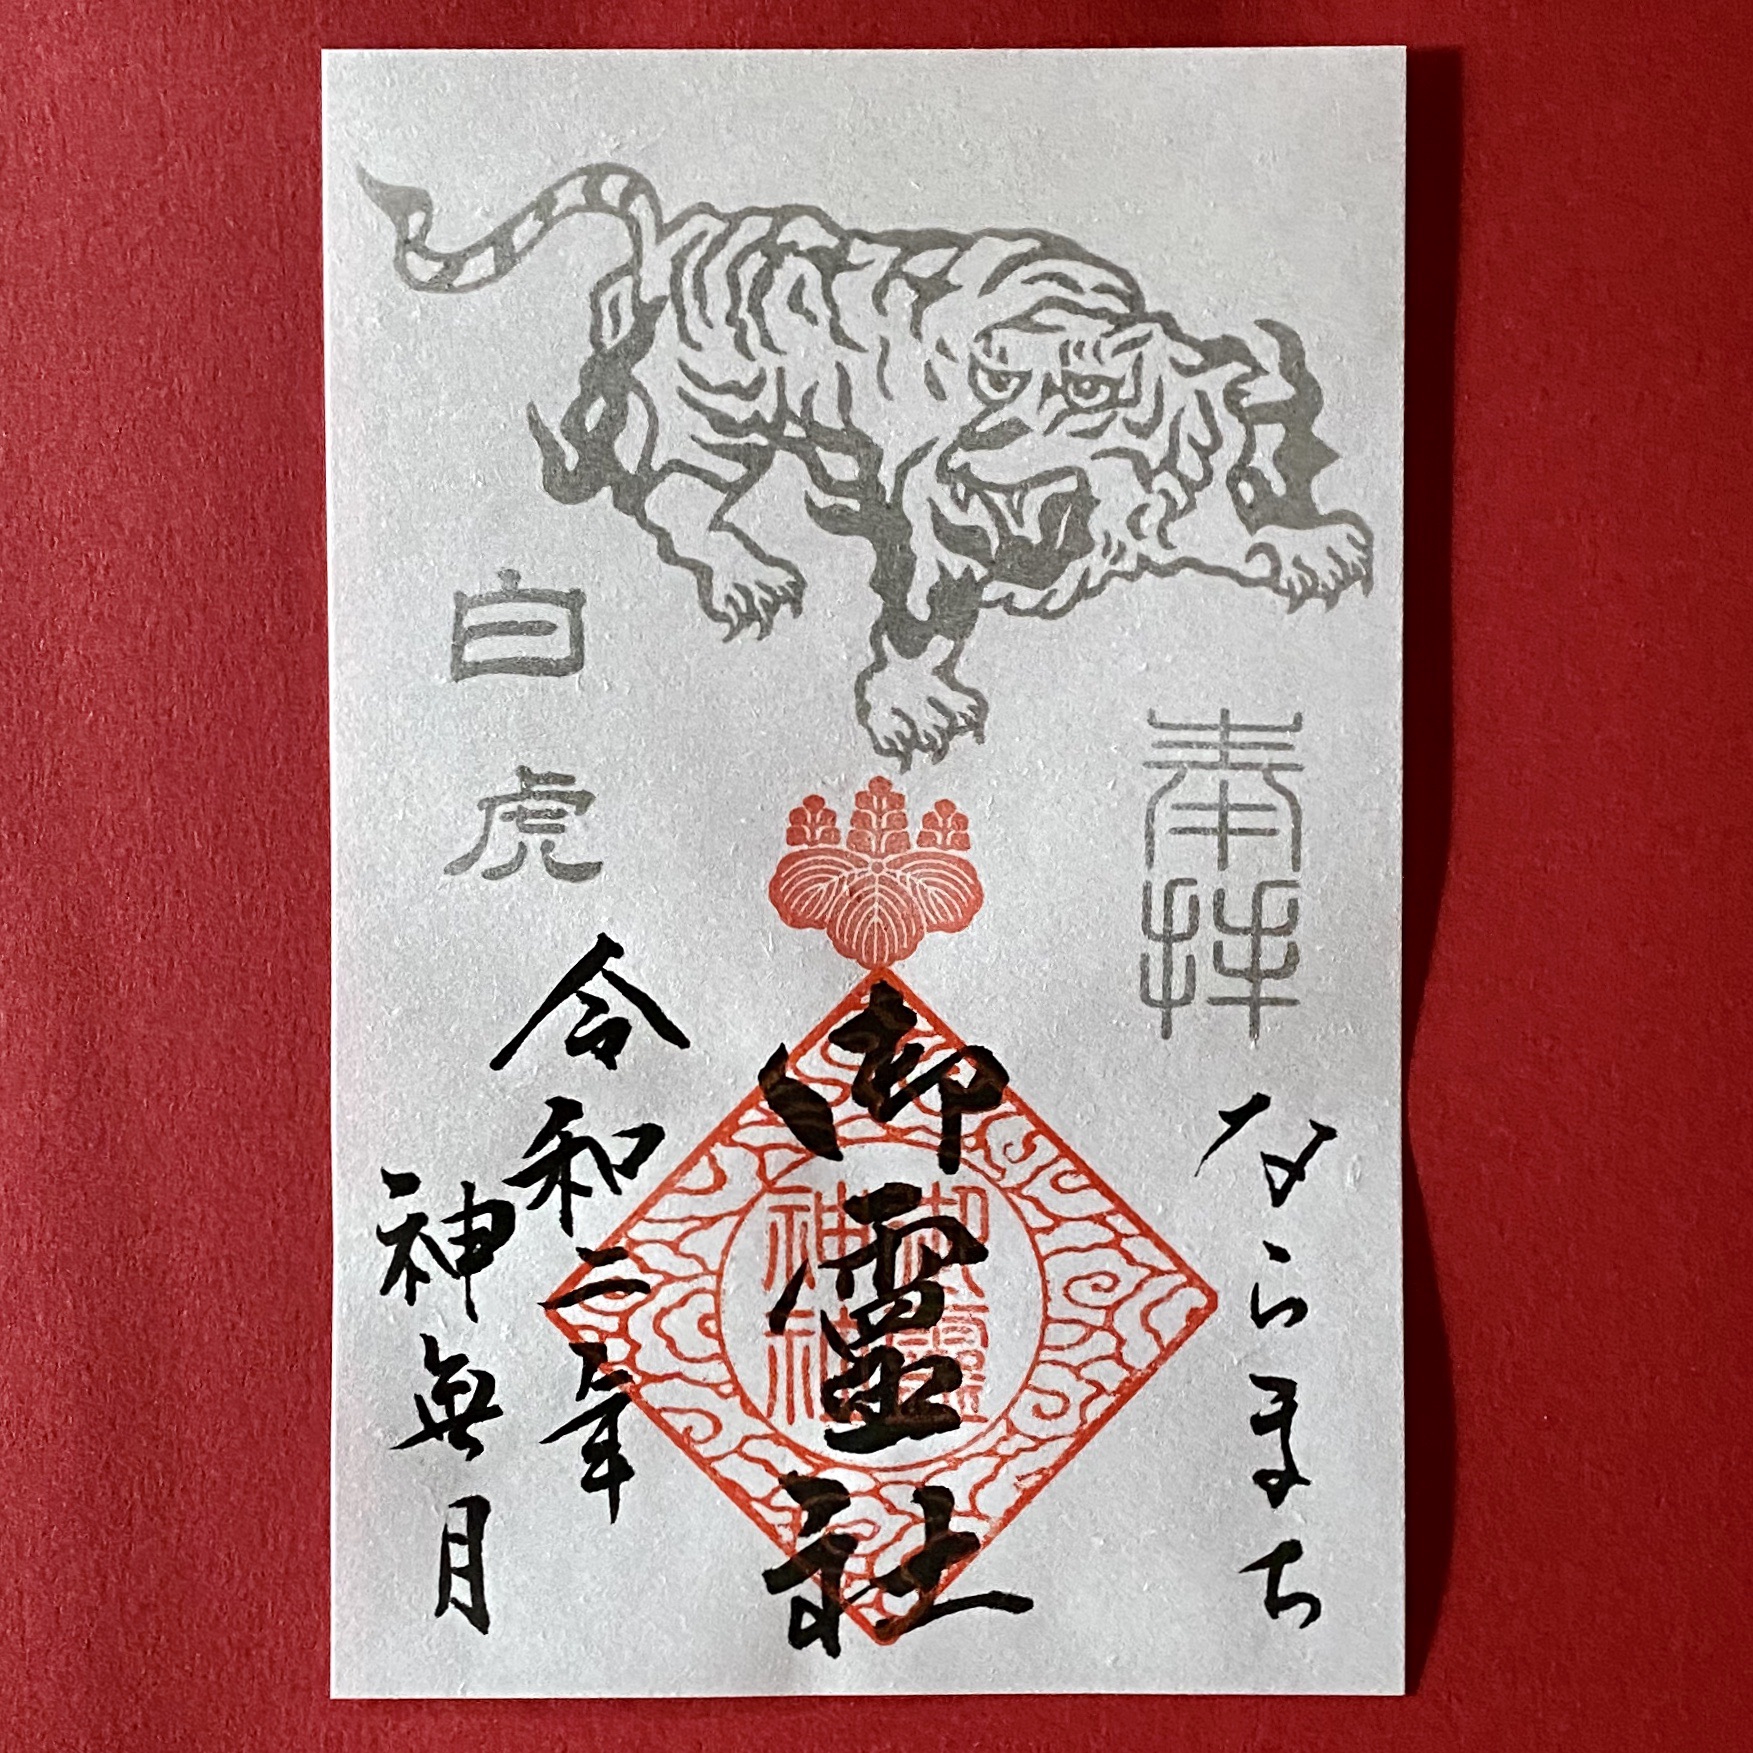 奉拝
ならまち
御霊社
御霊神社
白虎
令和二年
神無月